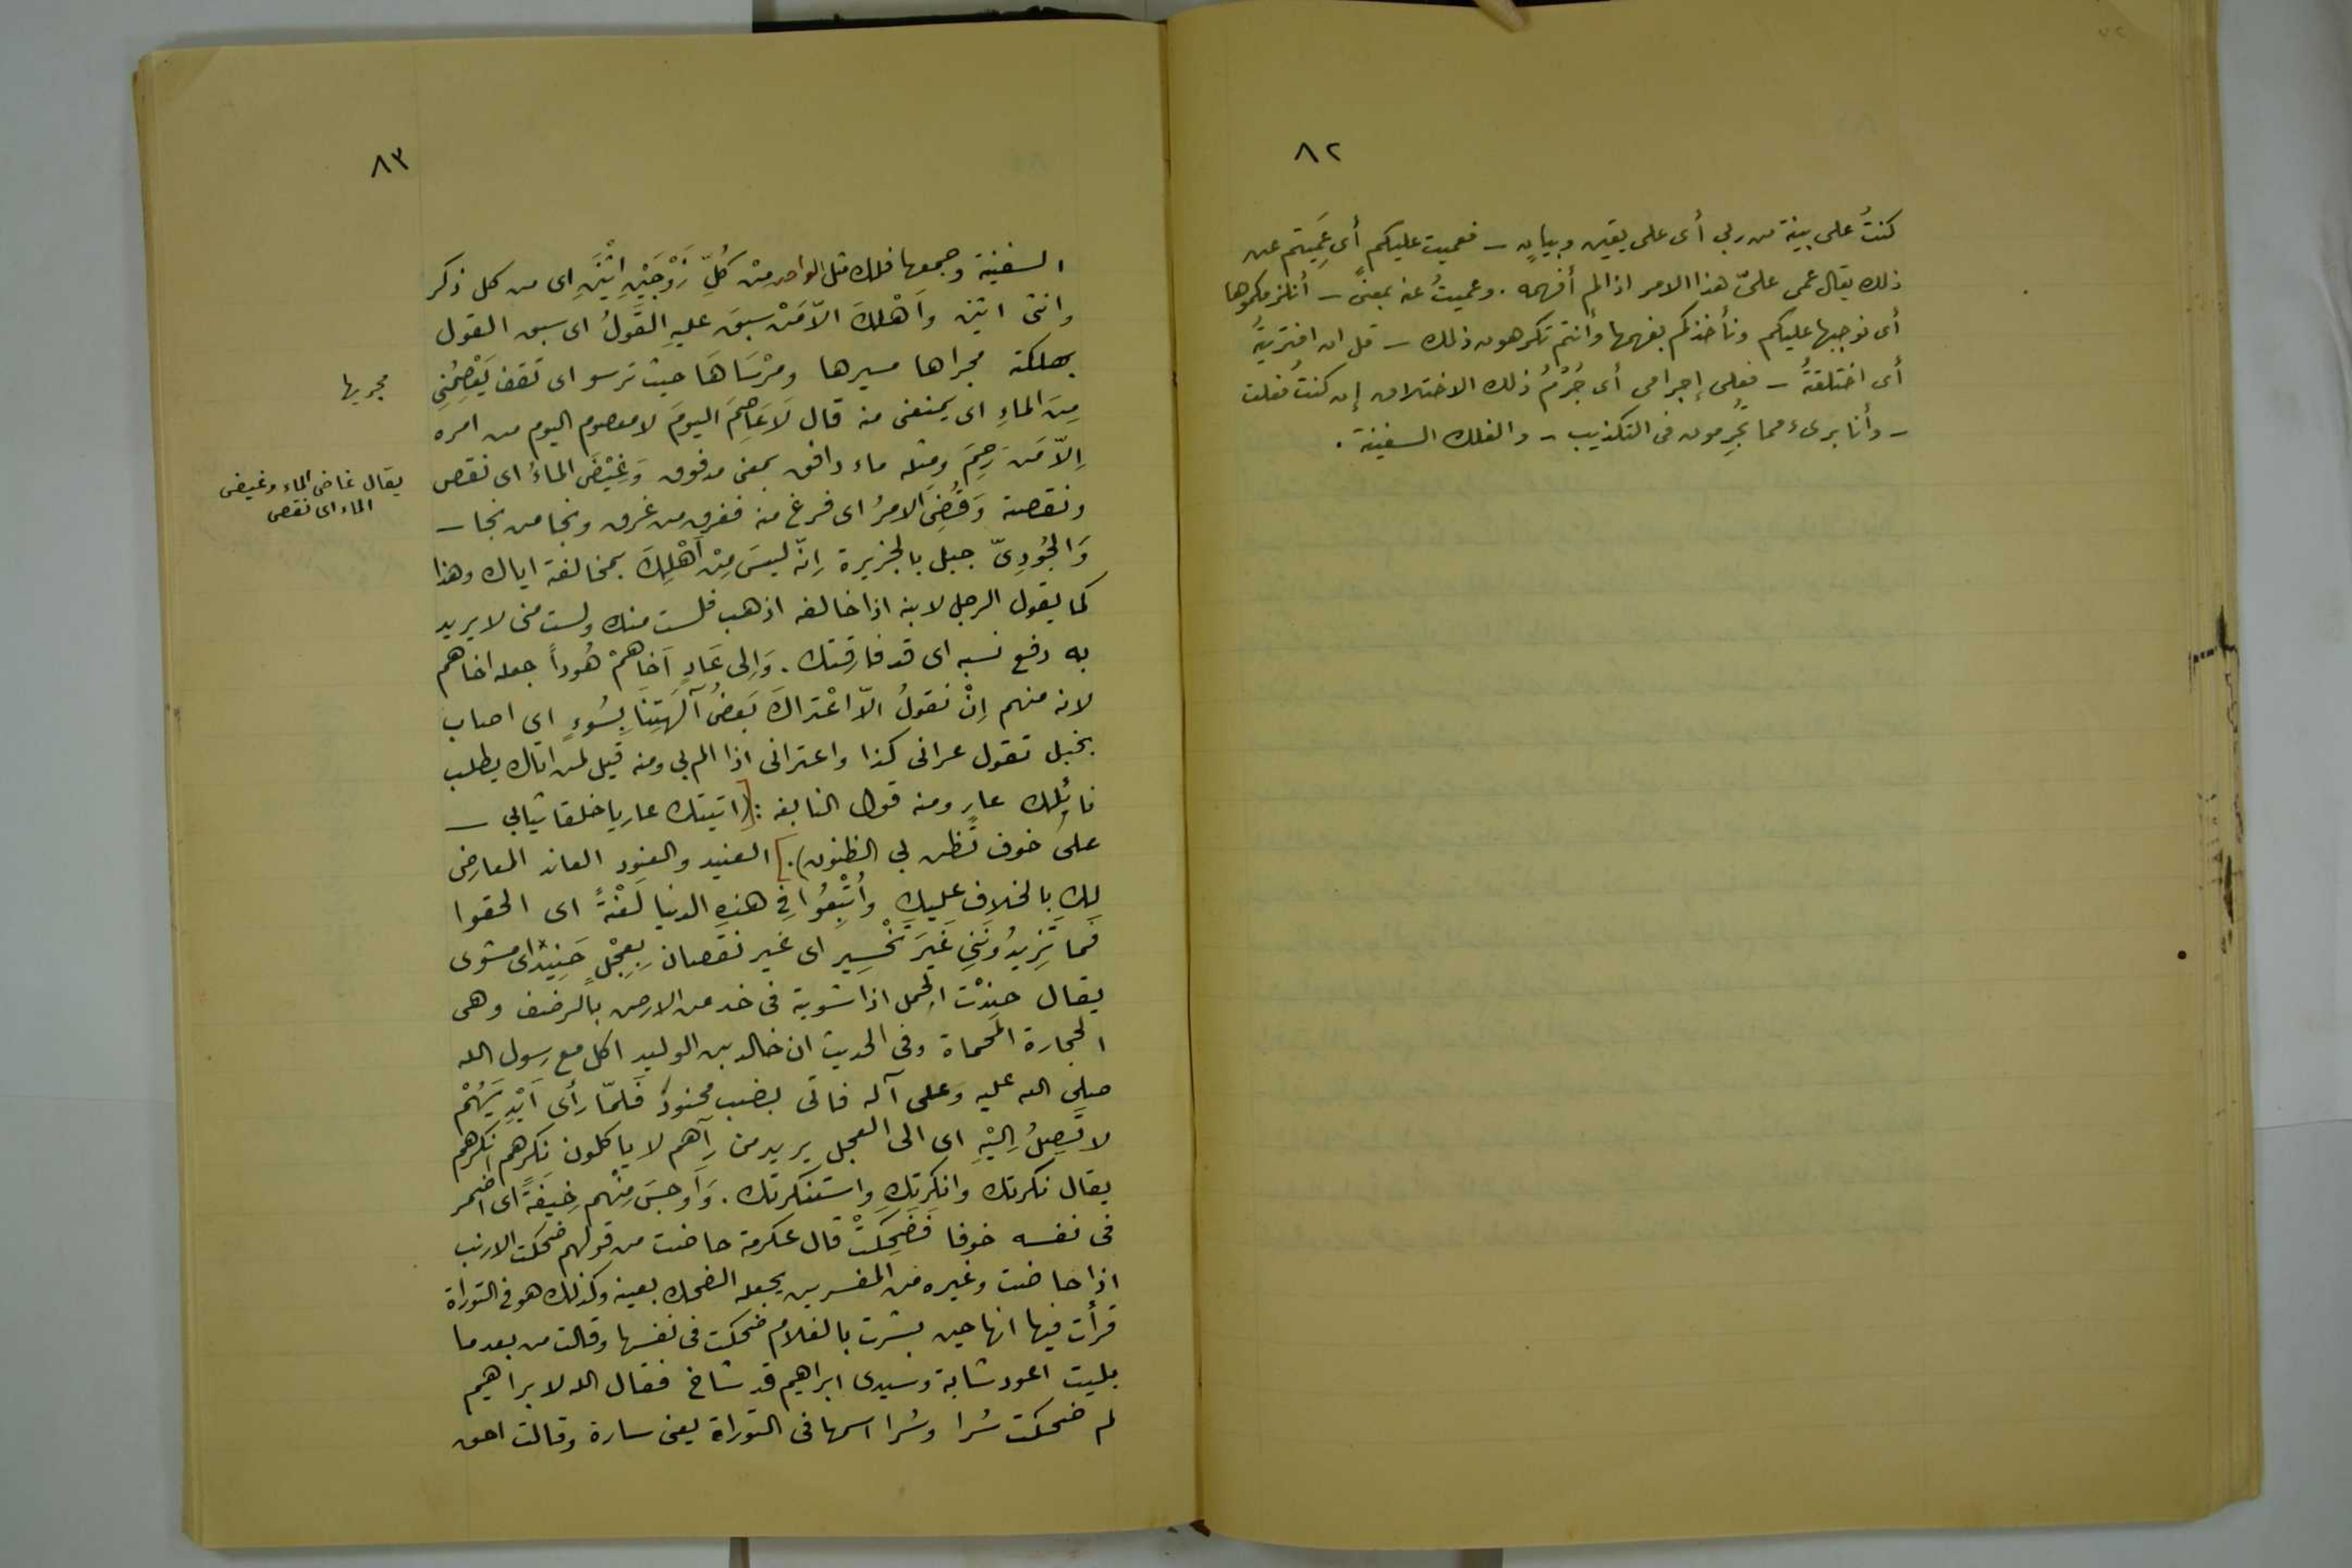 ٨٢
كنتُ على بينة من ربي أى على يقين وبيانٍ ـ فعميت عليكم أى عَمِيتم عن
ذلك يقال عمى علىّ هذا الامر اذا لم أفهمه . وعميتُ عنه بمعنىً ـ أنلزمكموها
أى نوجبها عليكم ونأخذكم بفهمها وأنتم تكرهون ذلك ـ قل ان افتريتهُ
أى اختلقتهُ ـ فعلى إجرامى أى جُرْمُ ذلك الاختلاق إن كنت فعلت
ـ وأنا برىء مما تُجرِمون فى التكذيب ـ والفلك السفينة .
٨٣
السفينة وجمعها فلك مثل الواحد مِنْ كُلِّ زَوْجَيْنِ اثْنَيْنِ اى من كل ذكر
وانثى اثنين وَاَهْلَكَ الاّ مَنْ سبقَ عليهِ القَولُ اى سبق القول
بهلكته مجراها مسيرها ومُرْسَاهَا حيث ترسو اى تقف يَعْصِمُنِى
مجريها
مِنَ الماءِ اى يمنعنى منه قال لاَ عَاصِمَ اليومَ لا معصوم اليوم من امره
اِلاّ مَنَ رَحِمَ ومثله ماء دافق بمعنى مدفوق وَغِيْضَ الماءُ اى نقص
يقال غاض الماء وغيض
الماء اى نقص
ونقصته وَقُضِىَ الامرُ اى فرغ منه فغرق من غرق ونجا من نجا ـ
وَالجُودِىّ جبل بالجزيرة اِنّه ليسَ مِنْ اَهْلِكَ بمخالفته اياك وهذا
كما يقول الرجل لابنه اذا خالفه اذهب فلست منك ولست منى لا يريد
به دفع نسبه اى قد فارقتك . وَاِلى عَادٍ اَخَاهُمْ هُوداً جعله اخاهم
لانه منهم اِنْ نَقولُ الاّ اعْتراكَ بَعضُ آلهَتِنَا بِسُوءٍ اى اصاب
بخبل تقول عرانى كذا واعترانى اذا الم بي ومنه قيل لمن اتاك يطلب
نائلك عارٍ ومنه قول النابغه : [(اتيتك عاريا خلقا ثيابى ـ
على خوف تظن بي الظنون).] العنيد والعنود العاند المعارض
لك بالخلاف عليك وَاُتْبِعُوا فِى هذهِ الدنيا لَعْنَةً اى الحقوا
فَمَا تَزِيدُونَنِى غَيْرَ تَخْسِير اى غير نقصان بِعِجْلٍ حَنِيْذٍ اى مشوى
يقال حنذْت الجمل اذا شويته فى خد من الارض بالرضف وهى
الحجارة المحماة وفى الحديث ان خالد بن الوليد اكل مع رسول الله
صلى الله عليه وعلى آله فاتى بضب محنوذ فَلمّا رَأى اَيْدِيَهُمْ
لا تَصِلُ اِليْهِ اى الى العجل يريد من رآهم لا ياكلون نكرهم انكرهم
يقال نكرتك وانكرتك واستنكرتك . وَاَوجسَ مِنْهم خِيفَةً اى اضمر
فى نفسه خوفا فَضَحِكَتْ قال عكرمة حاضت من قولهم ضحكت الارنب
اذا حاضت وغيره من المفسرين يجعله الضحك بعينه وكذلك هو فى التوراة
قرأت فيها انها حين بشرت بالغلام ضحكت فى نفسها وقالت من بعد ما
بليت اعود شابة وسيدى ابراهيم قد شاخ فقال الله لابراهيم
لم ضحكت سُرا وسُرا اسمها فى التوراة يعنى سارة وقالت احق